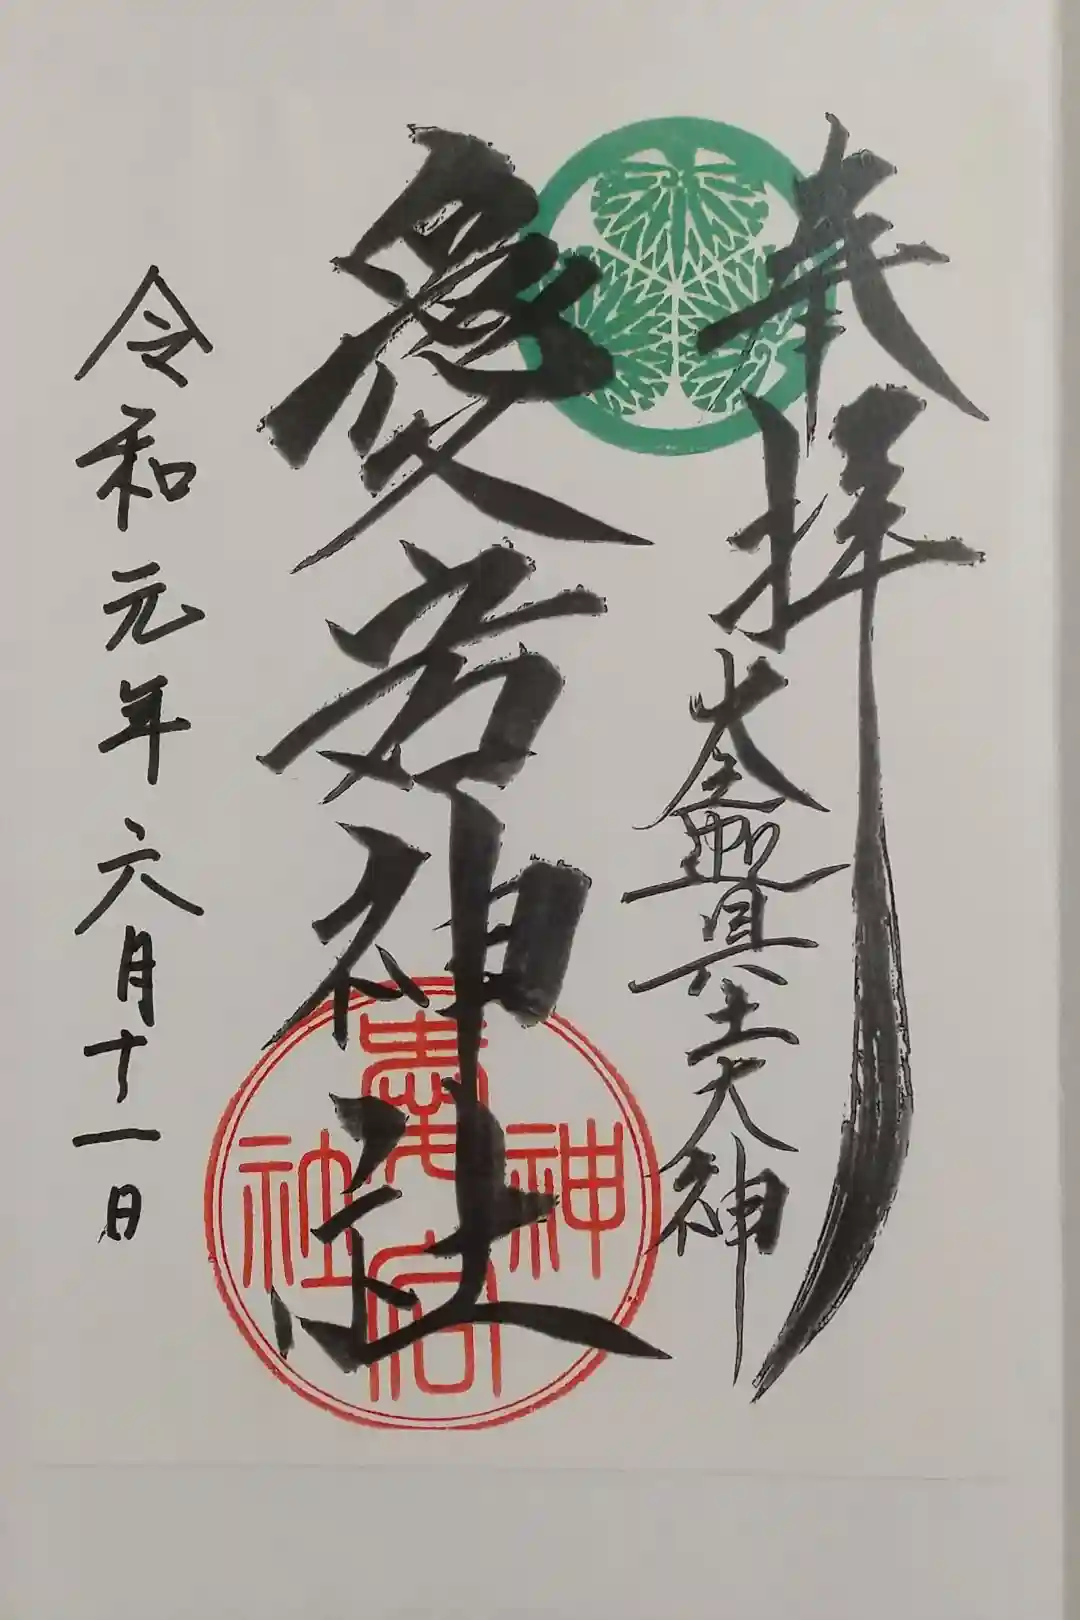 奉拝
大神
愛宕神社
令和元年六月十一日
愛宕神社